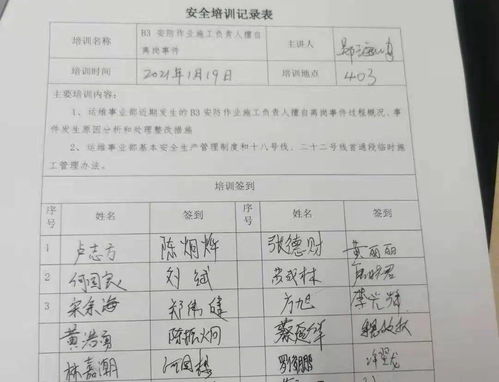 安全培训记录表
培训名称 B3 安防作业施工负责人擅自离岗事件 主讲人
培训时间 2021年1月19日 培训地点 403
主要培训内容：
1、运维事业部近期发生的 B3 安防作业施工负责人擅自离岗事件过程概况、事
件发生原因分析和处理整改措施
2、运维事业部基本安全生产管理制度和十八号线、二十二号线首通段临时施
工管理办法。
培训签到
序号 姓名 签到 序号 姓名 签到
1 卢志方 陈炯烨 张德财 黄丽丽
2 何国良 刘斌
3 宋余海 郑伟健 方旭
黄浩勇
林嘉潮